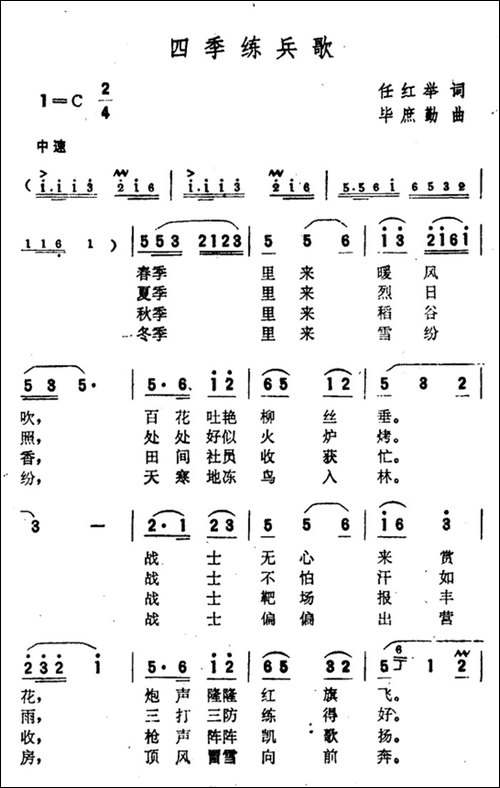 四季练兵歌
1=C 2/4
任红举 词
毕庶勤 曲
中速
(i.iii3 2i6 | i.iii3 2i6 | i.iii3 2i6 | 5.56i 6532
116 1 ) | 553 2123 | 5 5 6 | i3 2i6i
春季 里来 暖风
夏季 里来 烈日
秋季 里来 稻谷
冬季 里来 雪纷
53 5· | 5·6 i2 | 65 i2 | 5 3 2
吹, 百花吐艳 柳丝 垂。
照, 处处好似 火炉 烤。
香, 田间社员 收获 忙。
纷, 天寒地冻 鸟入 林。
3 — | 2·i 23 | 5 5 6 | i6 3·
战士 无心 来赏
战士 不怕 汗如
战士 靶场 报丰
战士 偏偏 出营
232 i | 5·6 i2 | 65 32 | 5 1 2
花, 炮声隆隆 红旗 飞。
雨, 三打三防 练得 好。
收, 枪声阵阵 凯歌 扬。
房, 顶风冒雪 向前 奔。